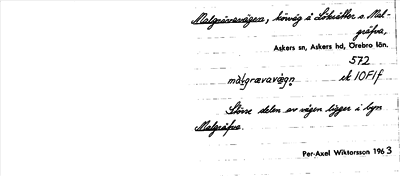 Malgrävavägen, körväg å Löksätter o. Mal-
gräfva,
Askers sn, Askers hd, Örebro län.
572
målgrævavägn ek 10F1f
Större delen av vägen ligger i byn
Malgräfva.
Per-Axel Wiktorsson 1963